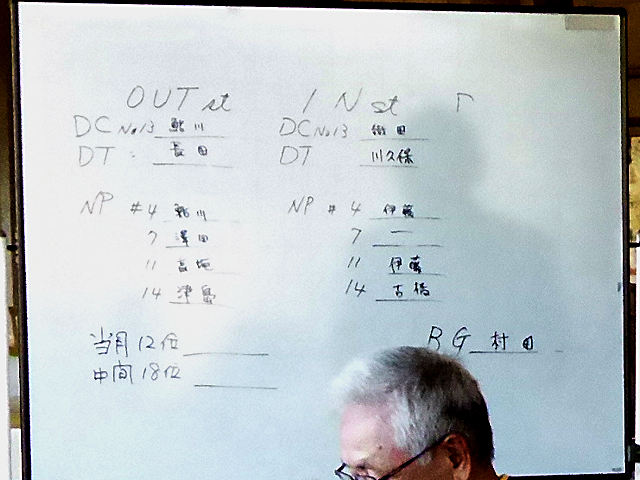 OUT st IN st
DC No13 鮎川 DC No13 織田
DT 長田 DT 川久保
NP #4 鮎川 NP #4 伊藤
7 澤田 7 —
11 11 伊藤
14 津島 14 古橋
当月12位 BG 村田
中間18位